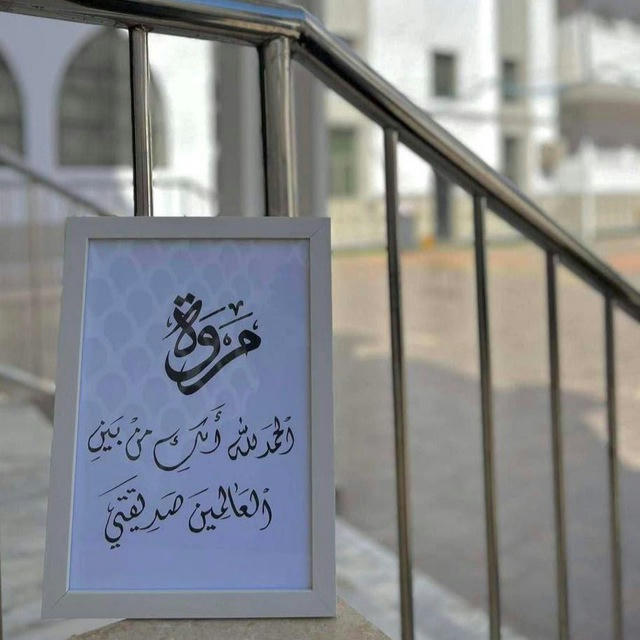 مروة
الحمدلله أنكِ من بين
العالمين صديقتي